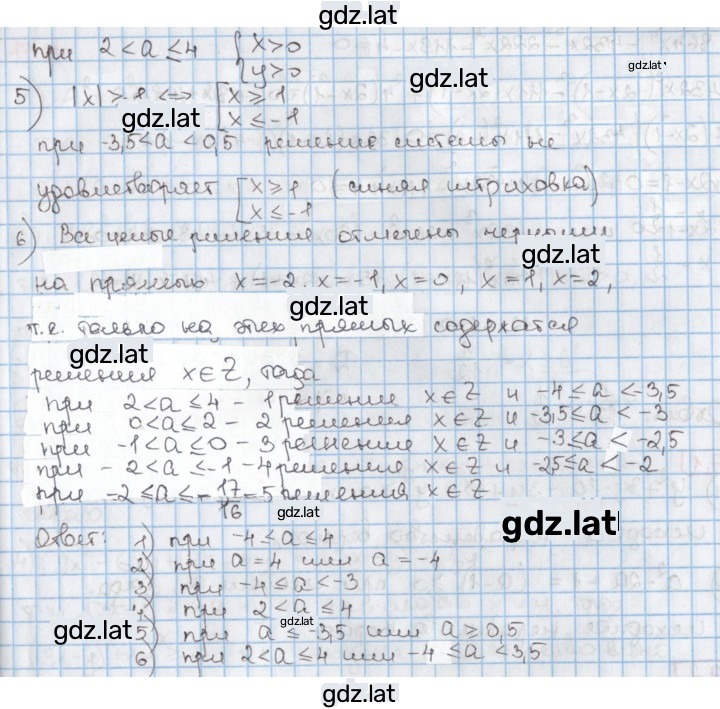 gdz.lat
при 2 < a ≤ 4 { x > 0
{ y > 0
gdz.lat
gdz.lat
5) |x| > 1 <=> [ x ≥ 1
[ x ≤ -1
gdz.lat
при -3,5 < a < 0,5 решение системы не
удовлетворяет [ x ≥ 1 (синяя штриховка)
[ x ≤ -1
6) Все целые решения отмечены черными
gdz.lat
на прямых x = -2. x = -1, x = 0, x = 1, x = 2,
gdz.lat
т.е. только на этих прямых содержатся
gdz.lat
решения x ∈ Z, тогда
при 2 < a ≤ 4 - 1 решение x ∈ Z и -4 ≤ a < -3,5
при 0 < a ≤ 2 - 2 решения x ∈ Z и -3,5 ≤ a < -3
при -1 < a ≤ 0 - 3 решения x ∈ Z и -3 ≤ a < -2,5
при -2 < a ≤ -1 - 4 решения x ∈ Z и -25 ≤ a < -2
при -2 ≤ a ≤ -17/16 = 5 решения x ∈ Z
gdz.lat
gdz.lat
Ответ: 1) при -4 ≤ a ≤ 4
2) при a = 4 или a = -4
3) при -4 ≤ a < -3
4) при 2 < a ≤ 4
gdz.lat
gdz.lat
5) при a ≤ -3,5 или a ≥ 0,5
6) при 2 < a ≤ 4 или -4 ≤ a < 3,5
gdz.lat